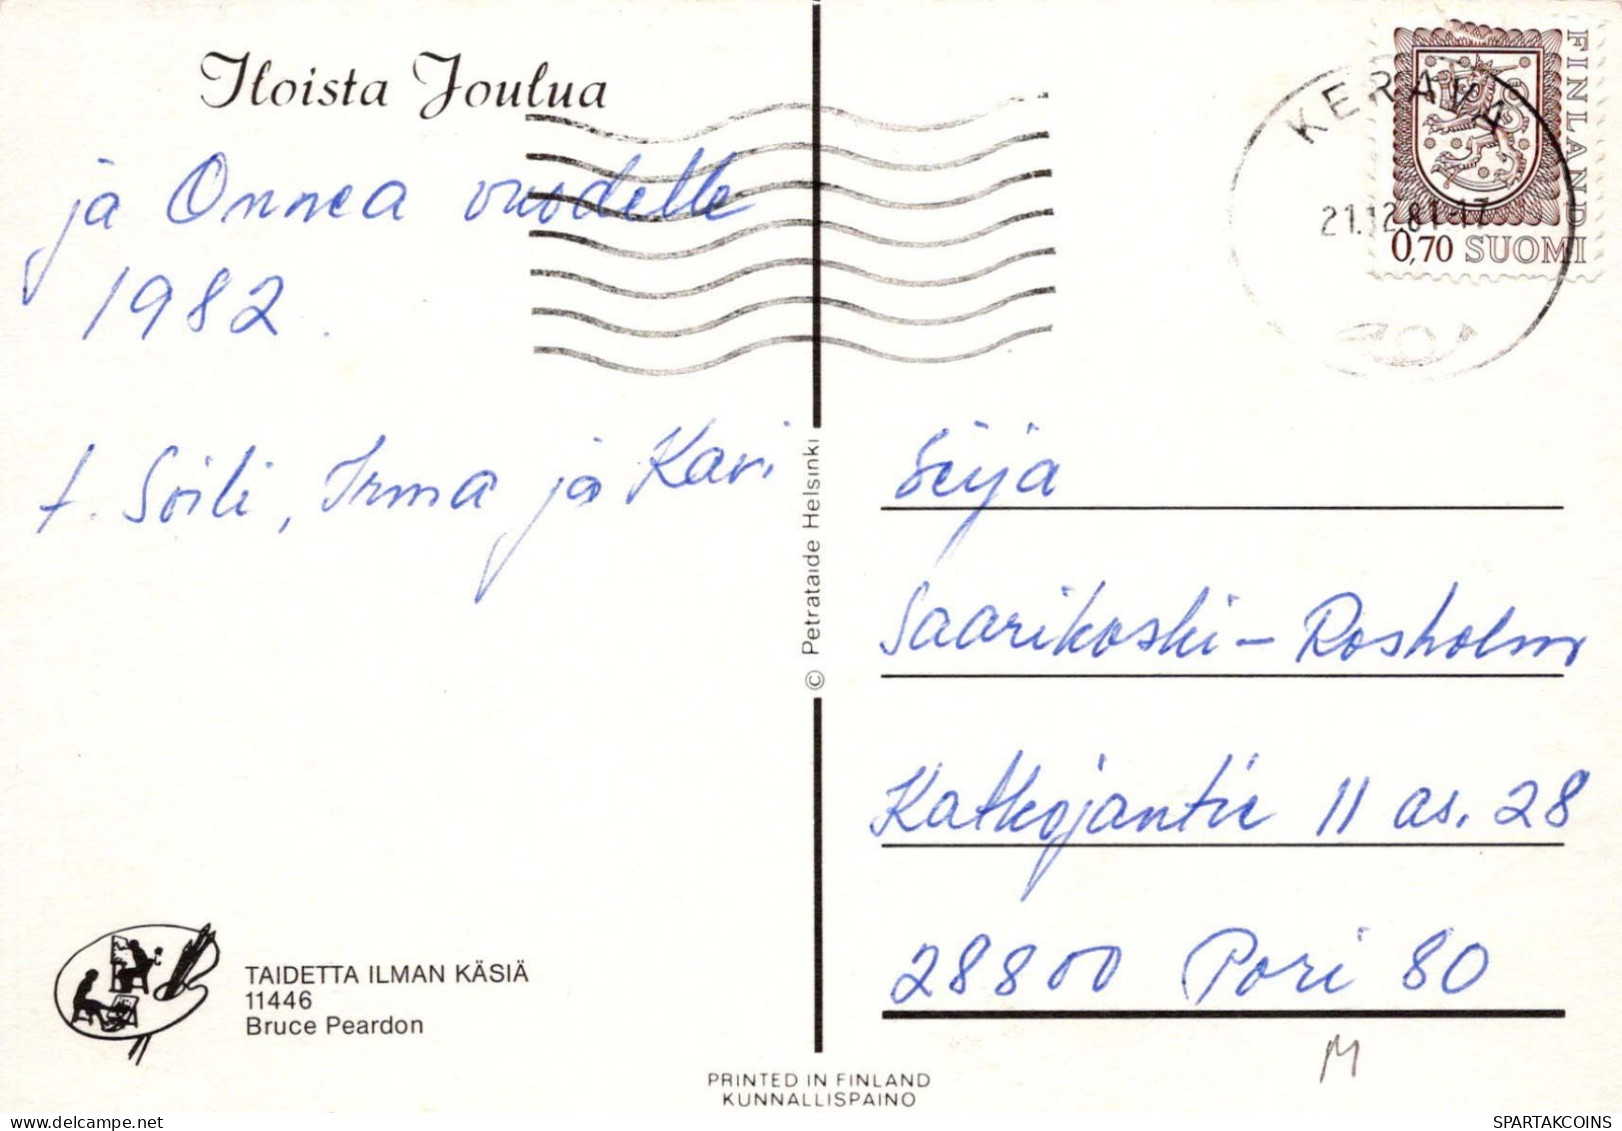 Iloista Joulua
ja Onnea vuodelle
1982.
t. Soili, Irma ja Kari
TAIDETTA ILMAN KÄSIÄ
11446
Bruce Peardon
© Petrataide Helsinki
PRINTED IN FINLAND
KUNNALLISPAINO
FINLAND
0,70 SUOMI
KERAVA
21.12.81-17
Seija
Saarikoski-Rosholm
Katkojantie 11 as. 28
28800 Pori 80
M
SPARTAKCOINS